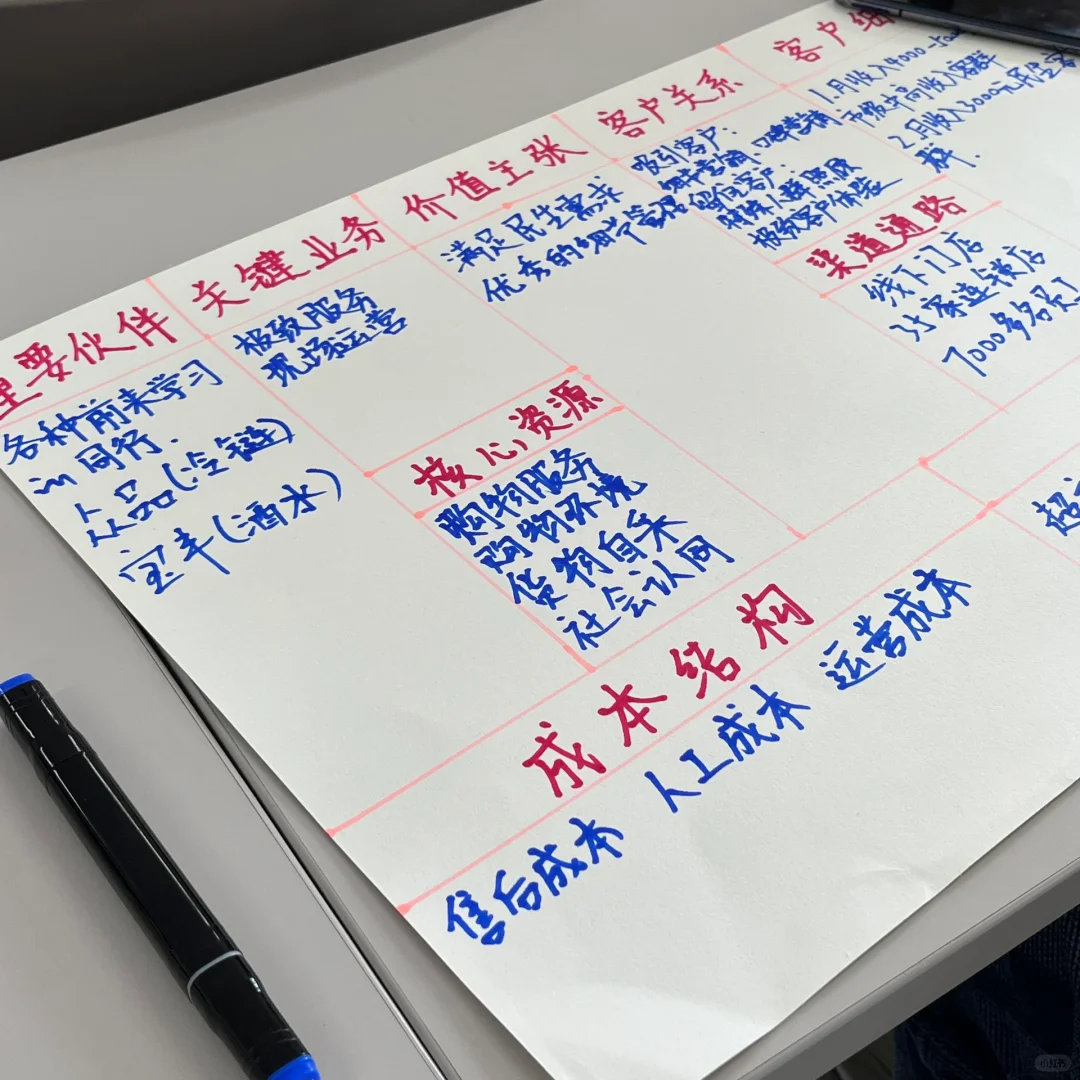 重要伙伴
各种前来学习
in同行.
人品(冷链)
宝丰(酒水)
关键业务
极致服务
现场运营
价值主张
满足民生需求
优秀的细节管理
核心资源
购物服务
购物环境
货物自采
社会认同
客户关系
吸引客户:
细节营销、口碑营销
留住客户:
特殊人群照顾
极致客户体验
渠道通路
线下门店
35家连锁店
7000多名员工
客户细
1.月收入4000-
市级中高收入客群
2.月收入3000元
群.
成本结构
售后成本 人工成本 运营成本
超